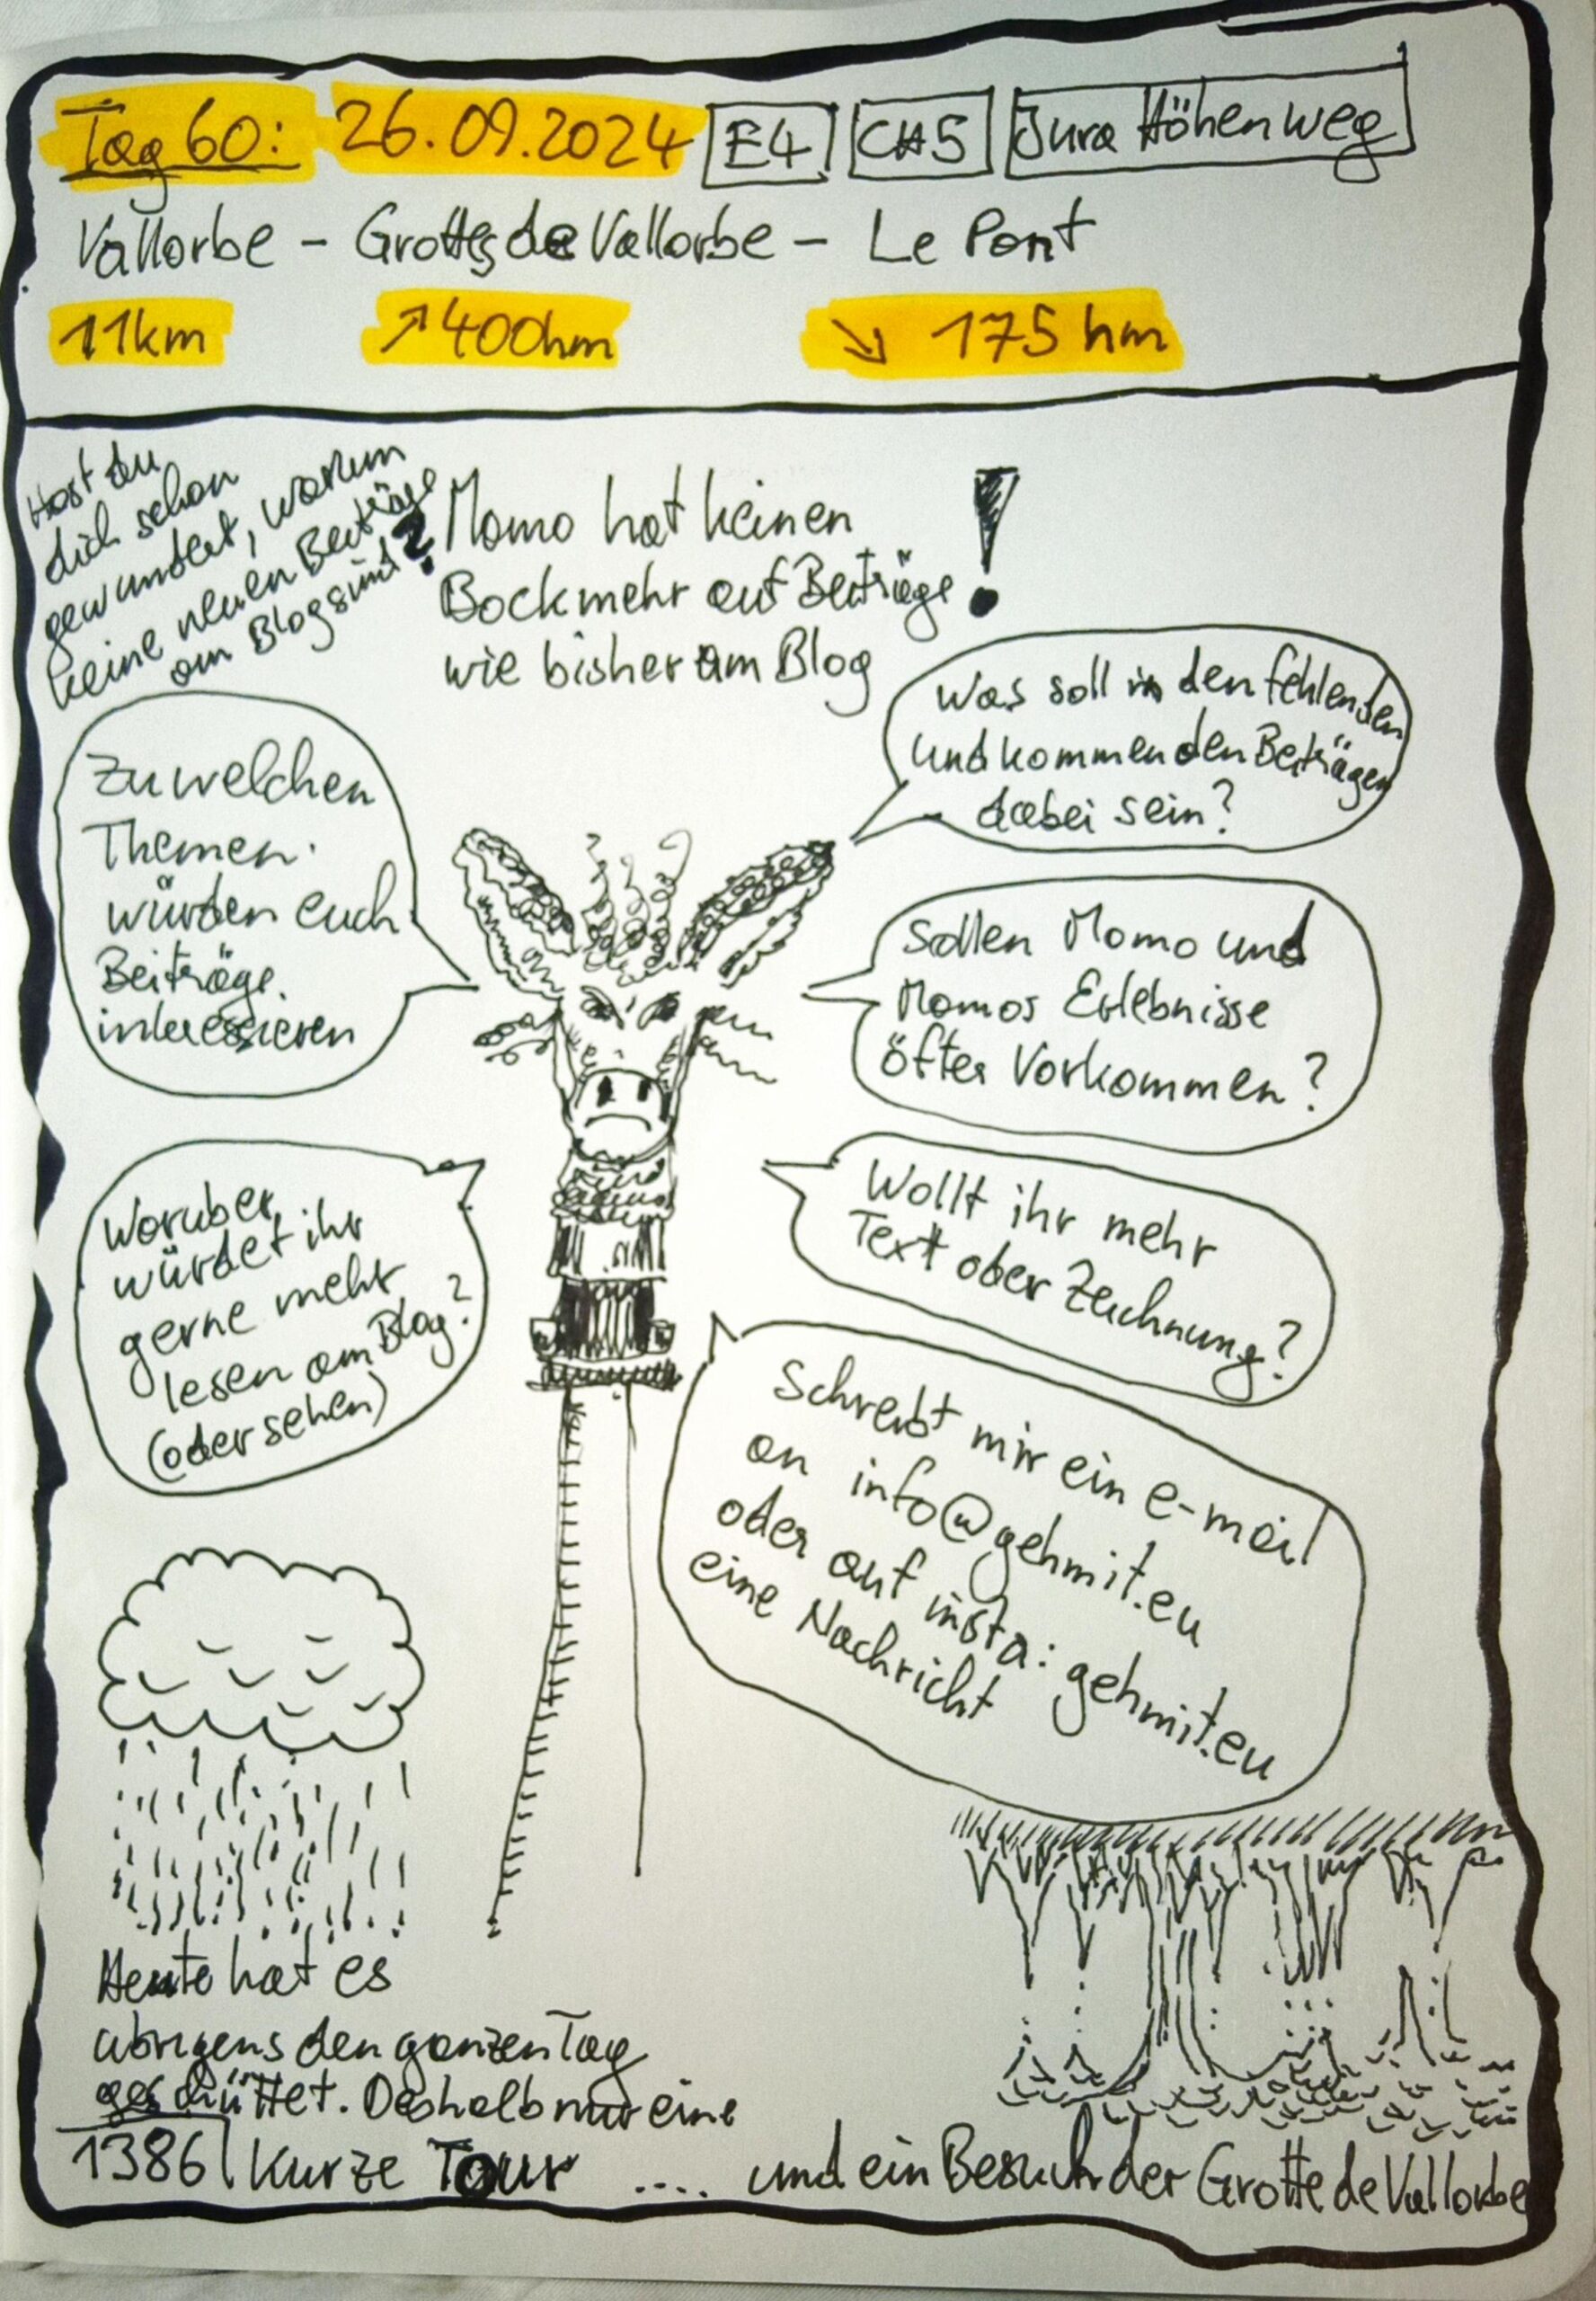 Tag 60: 26.09.2024 E4 CH5 Jura Höhenweg
Vallorbe - Grottes de Vallorbe - Le Pont
11km ↗400hm ↘ 175 hm
Hast du
dich schon
gewundert, warum
keine neuen Beiträge
am Blog sind?
Momo hat keinen
Bock mehr auf Beiträge
wie bisher am Blog !
Was soll in den fehlenden
und kommenden Beiträgen
dabei sein?
Zu welchen
Themen
würden euch
Beiträge
interessieren
Sollen Momo und
Momos Erlebnisse
öfter Vorkommen?
Worüber
würdet ihr
gerne mehr
lesen am Blog?
(oder sehen)
Wollt ihr mehr
Text ober Zeichnung?
Schreibt mir ein e-mail
an info@gehmit.eu
oder auf insta: gehmit.eu
eine Nachricht
Heute hat es
übrigens den ganzen Tag
geschüttet. Deshalb nur eine
1386 Kurze Tour .... und ein Besuch der Grotte de Vallorbe